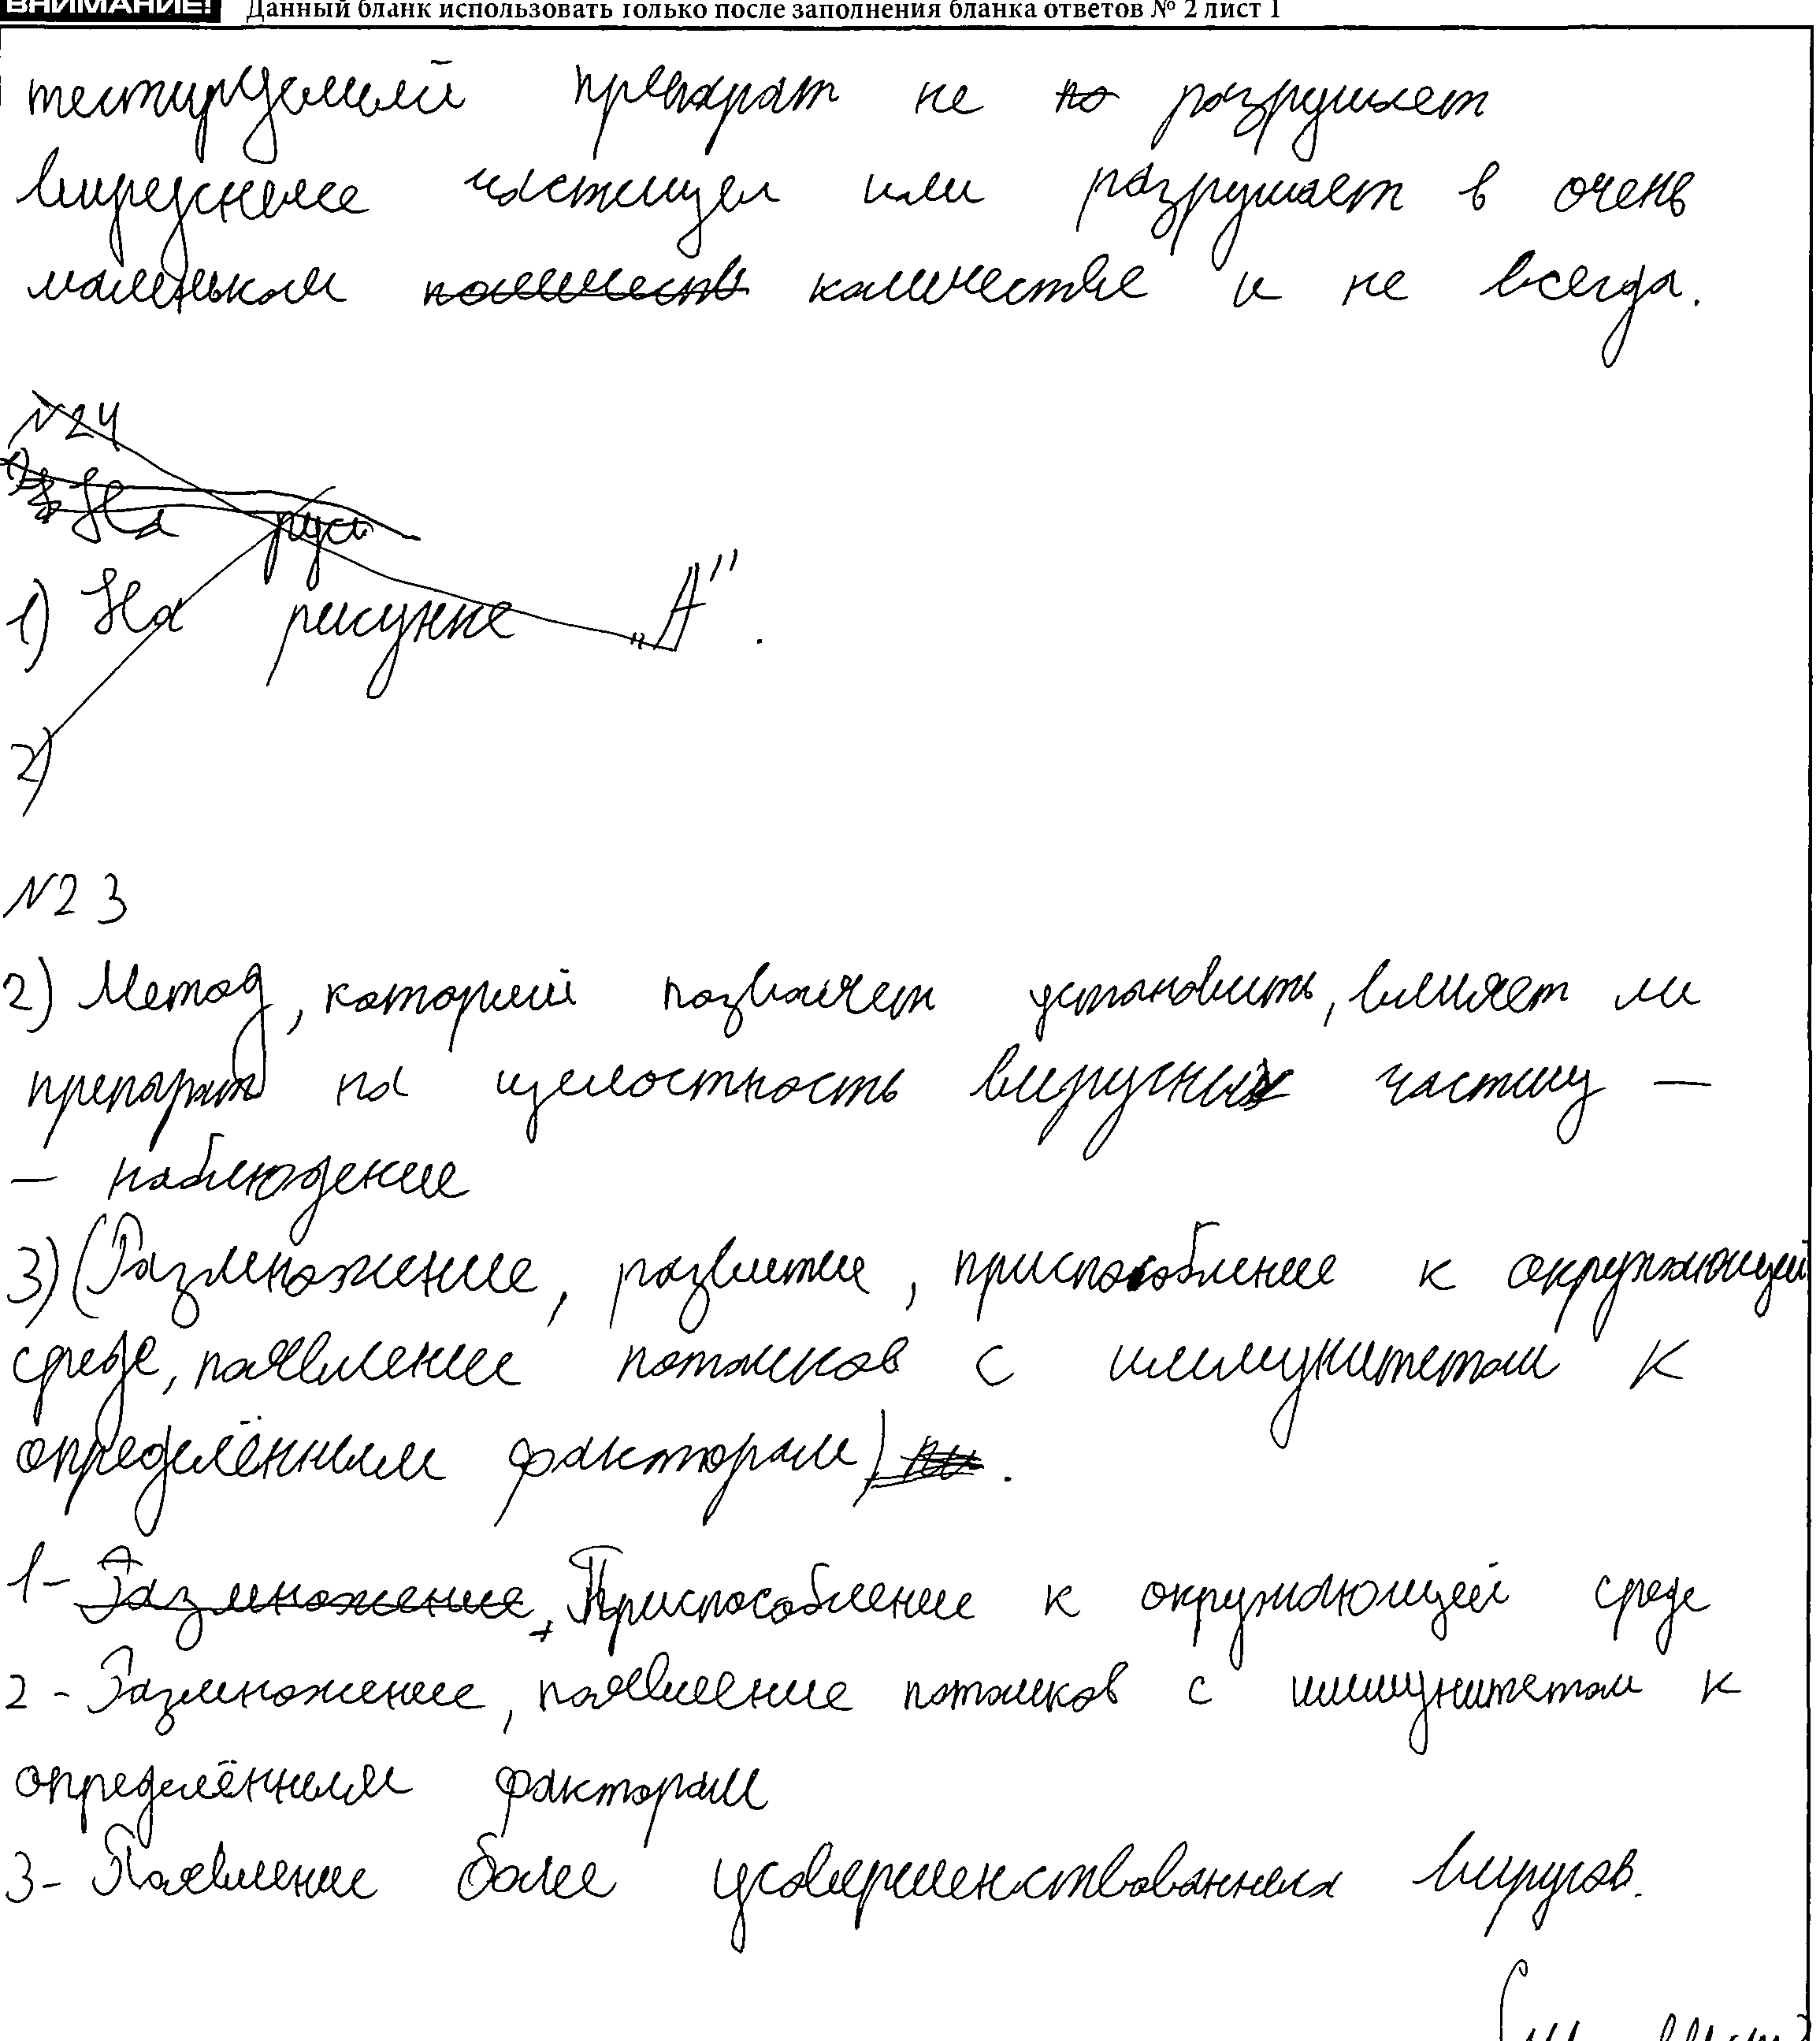 ВНИМАНИЕ! Данный бланк использовать только после заполнения бланка ответов № 2 лист 1
тестируемый препарат не по разрушает
вирусные частицы или разрушает в очень
маленьком количестве и не всегда.
№24
1) На рису
1) На рисунке „А".
2)
№23
2) Метод, который позволяет установить, влияет ли
препарат на целостность вирусных частиц —
— наблюдение
3) (Размножение, развитие, приспособление к окружающей
среде, появление потомков с иммунитетом к
определённым факторам).
1- Размножение, Приспособление к окружающей среде
2 - Размножение, появление потомков с иммунитетом к
определённым факторам
3- Появление более усовершенствованных вирусов.